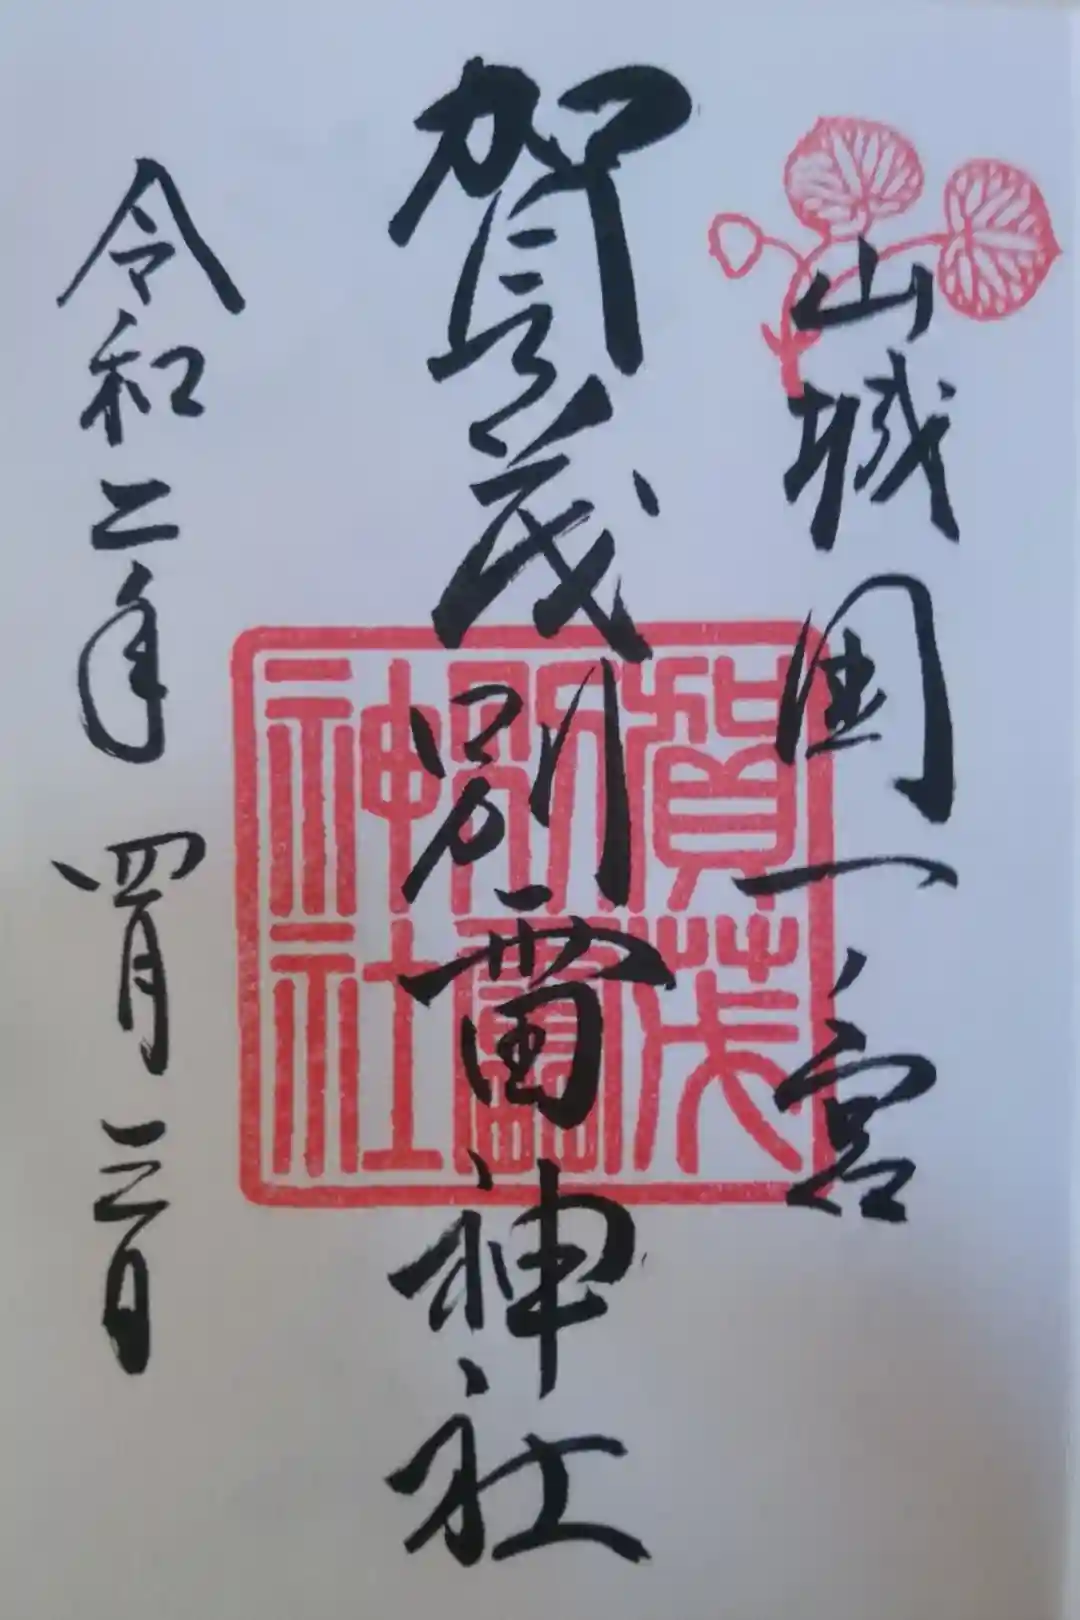 山城国一宮
賀茂別雷神社
令和二年四月三日
賀茂
別雷
神社